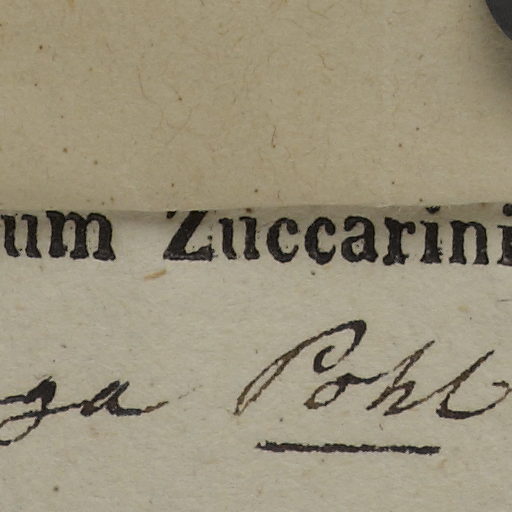 um Zuccarini
ga Pohl